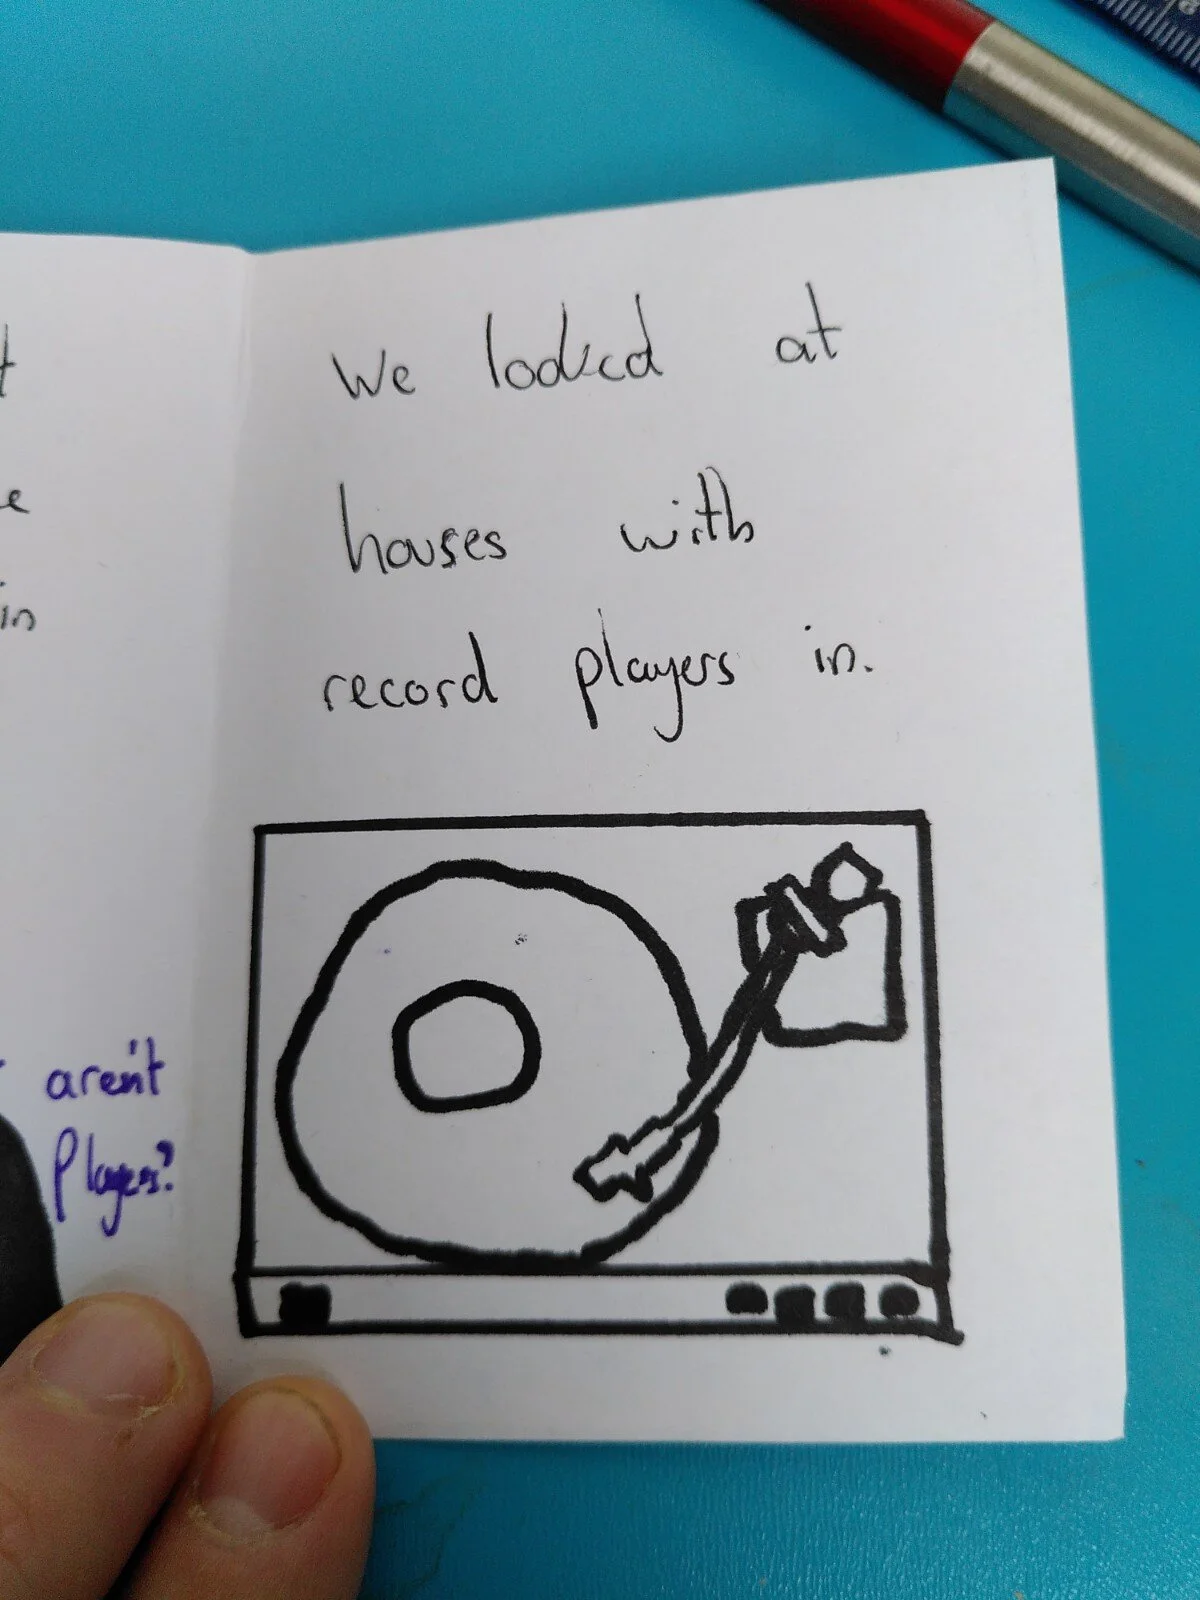 t
e
in
aren't
players?
We looked at
houses with
record players in.